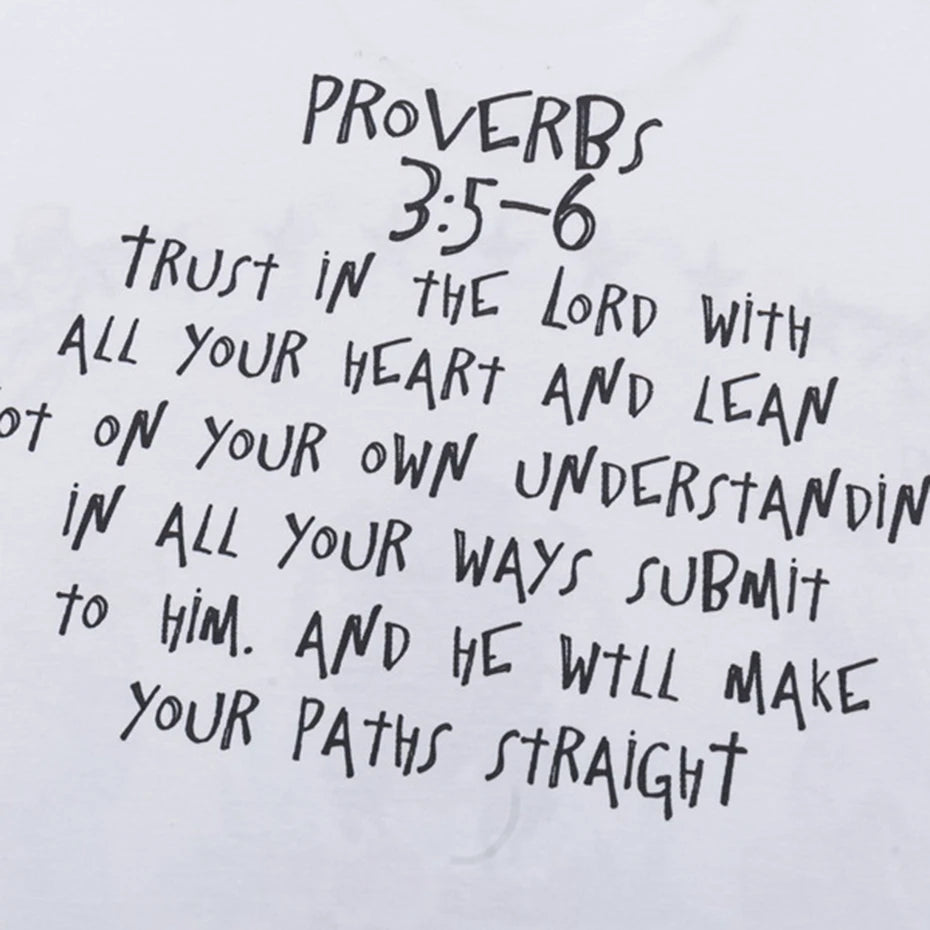 PROVERBS
3:5-6
TRUST iN tHE LORD WitH
ALL YOUR HEARt AND LEAN
Ot ON YOUR OWN UNDERStANDiN
iN ALL YOUR WAYS SUBMit
tO HiM. AND HE WtLL MAKE
YOUR PAtHS StRAiGHt